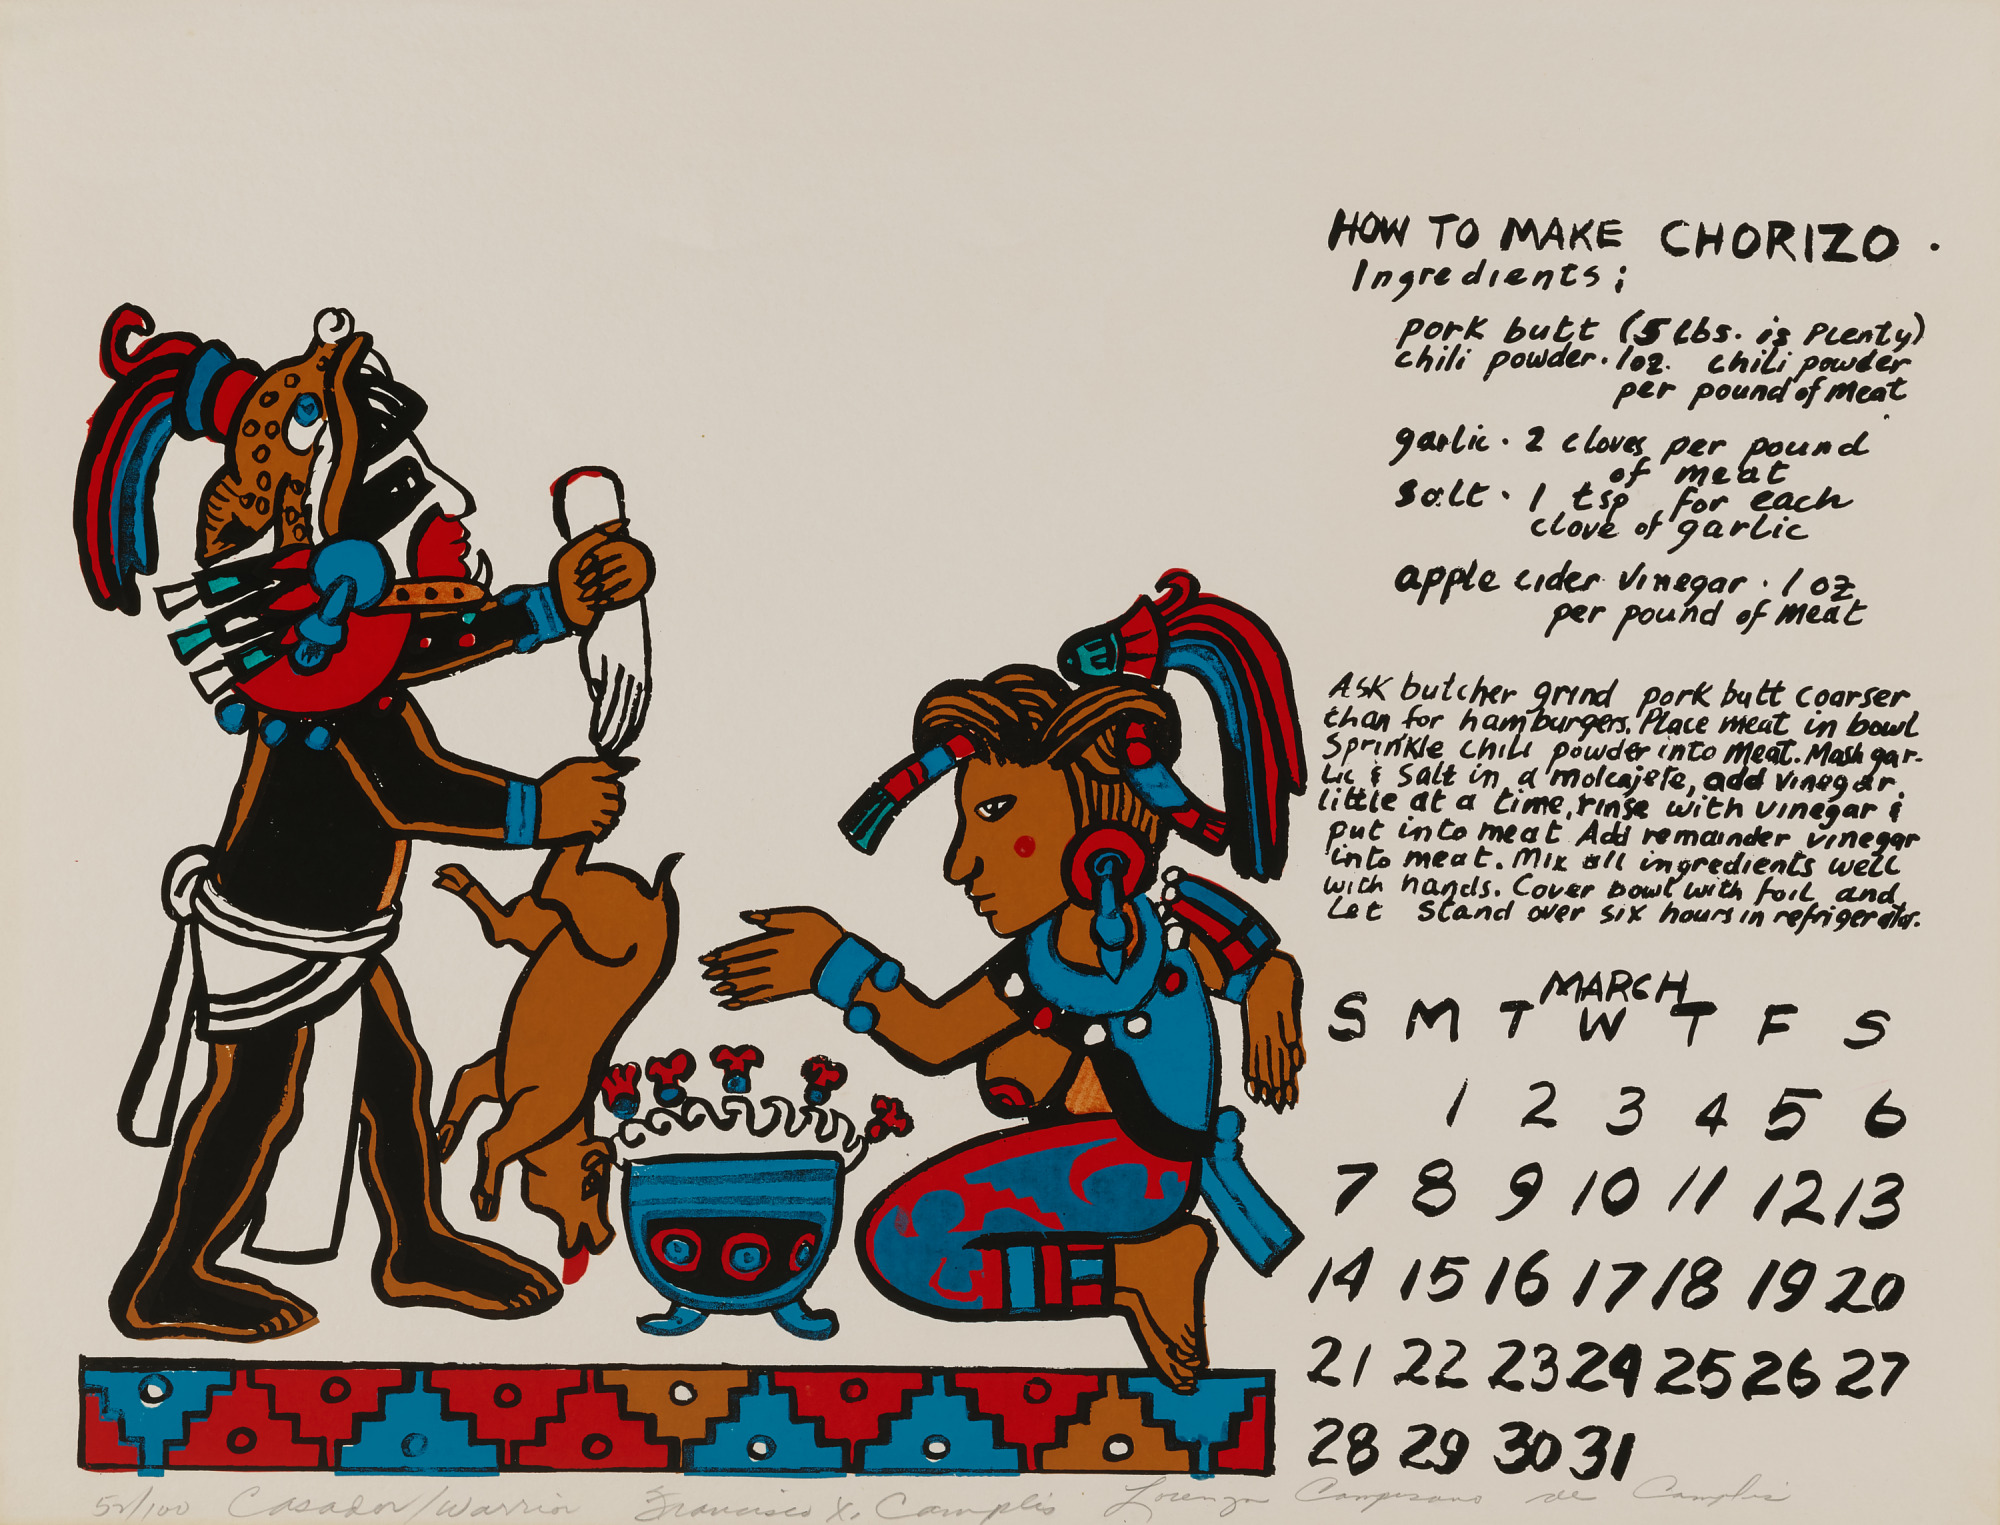 HOW TO MAKE CHORIZO.
Ingredients;
pork butt (5 lbs. is Plenty)
chili powder. 1oz. chili powder
per pound of meat
garlic. 2 cloves per pound
of meat
Salt. 1 tsp for each
clove of garlic
apple cider vinegar. 1 oz
per pound of meat
Ask butcher grind pork butt coarser
than for hamburgers. Place meat in bowl
Sprinkle chili powder into meat. Mash gar-
lic & Salt in a molcajete, add vinegar
little at a time, rinse with vinegar &
put into meat Add remainder vinegar
into meat. Mix all ingredients well
with hands. Cover bowl with foil and
Let Stand over six hours in refrigerator.
MARCH
S M T W T F S
1 2 3 4 5 6
7 8 9 10 11 12 13
14 15 16 17 18 19 20
21 22 23 24 25 26 27
28 29 30 31
52/100 Casador/Warrior Francisco X. Camplis Lorenza Campesano de Camplis